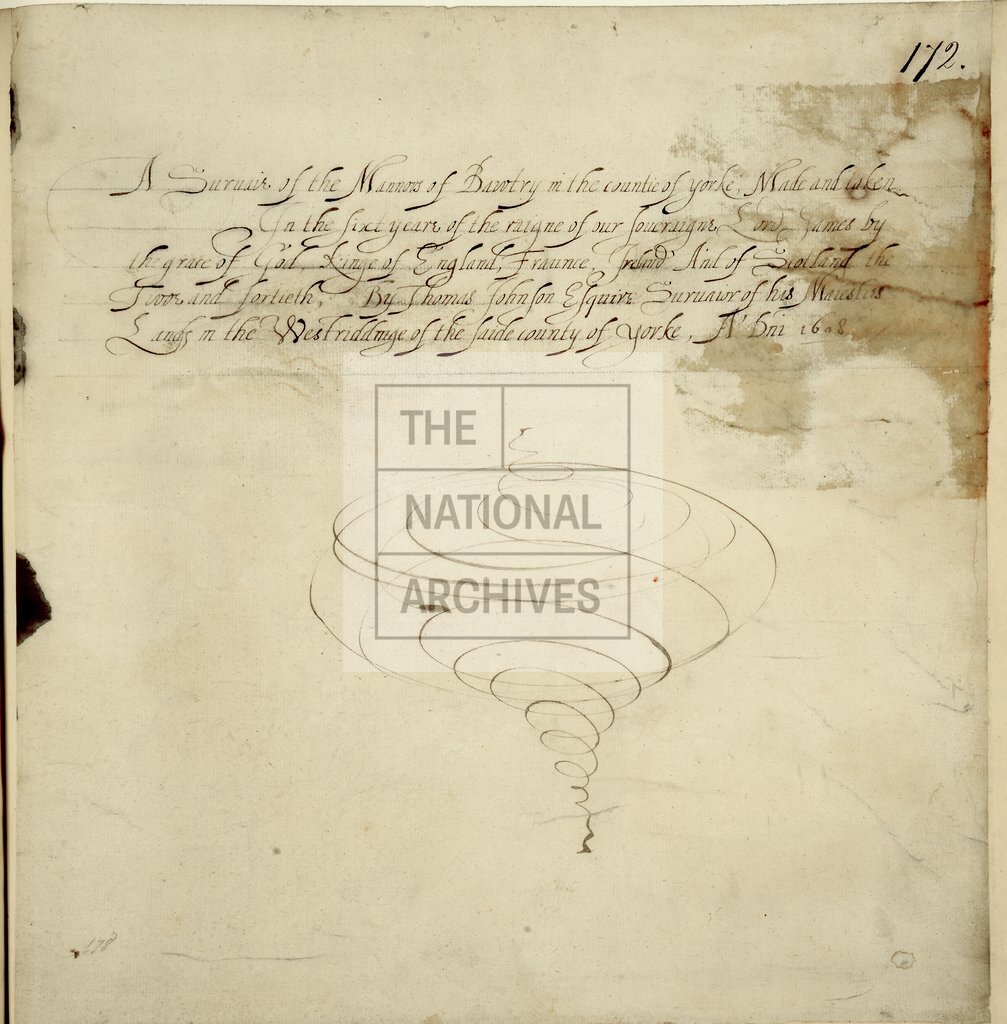 172.
A Survaie of the Mannors of Bawtry in the countie of yorke, Made and taken
In the sixt yeare of the raigne of our soveraigne Lord James by
the grace of God, Kinge of England, Fraunce, Ireland And of Scotland the
Twoe and fortieth, By Thomas Johnson Esquire Survaior of his Maiesties
Lands in the Westriddinge of the saide county of yorke, Aº Dni 1608
THE
NATIONAL
ARCHIVES
178